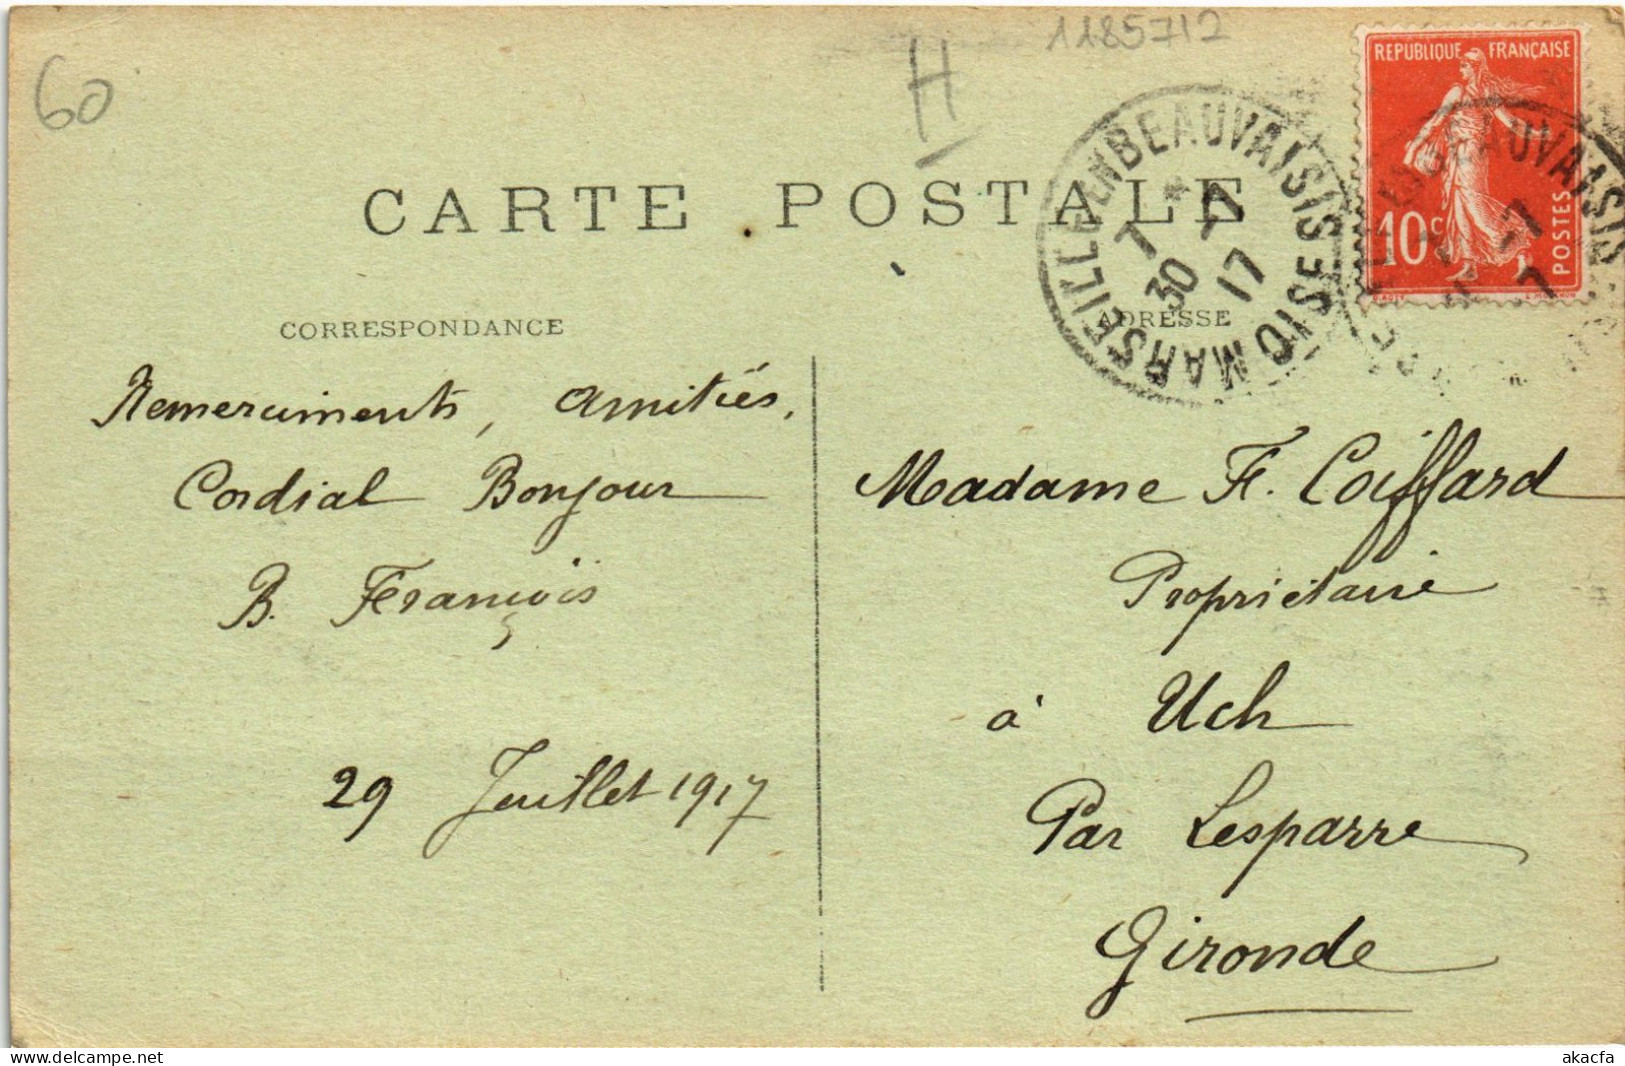 60
H
1185712
REPUBLIQUE FRANÇAISE
10c
POSTES
MARSEILLE-EN-BEAUVAISIS OISE
30 -7 17
CARTE POSTALE
CORRESPONDANCE
ADRESSE
Remerciments, Amitiés,
Cordial Bonjour
B. François
29 Juillet 1917
Madame F. Coiffard
Propriétaire
à Uch
Par Lesparre
Gironde
akacfa
www.delcampe.net